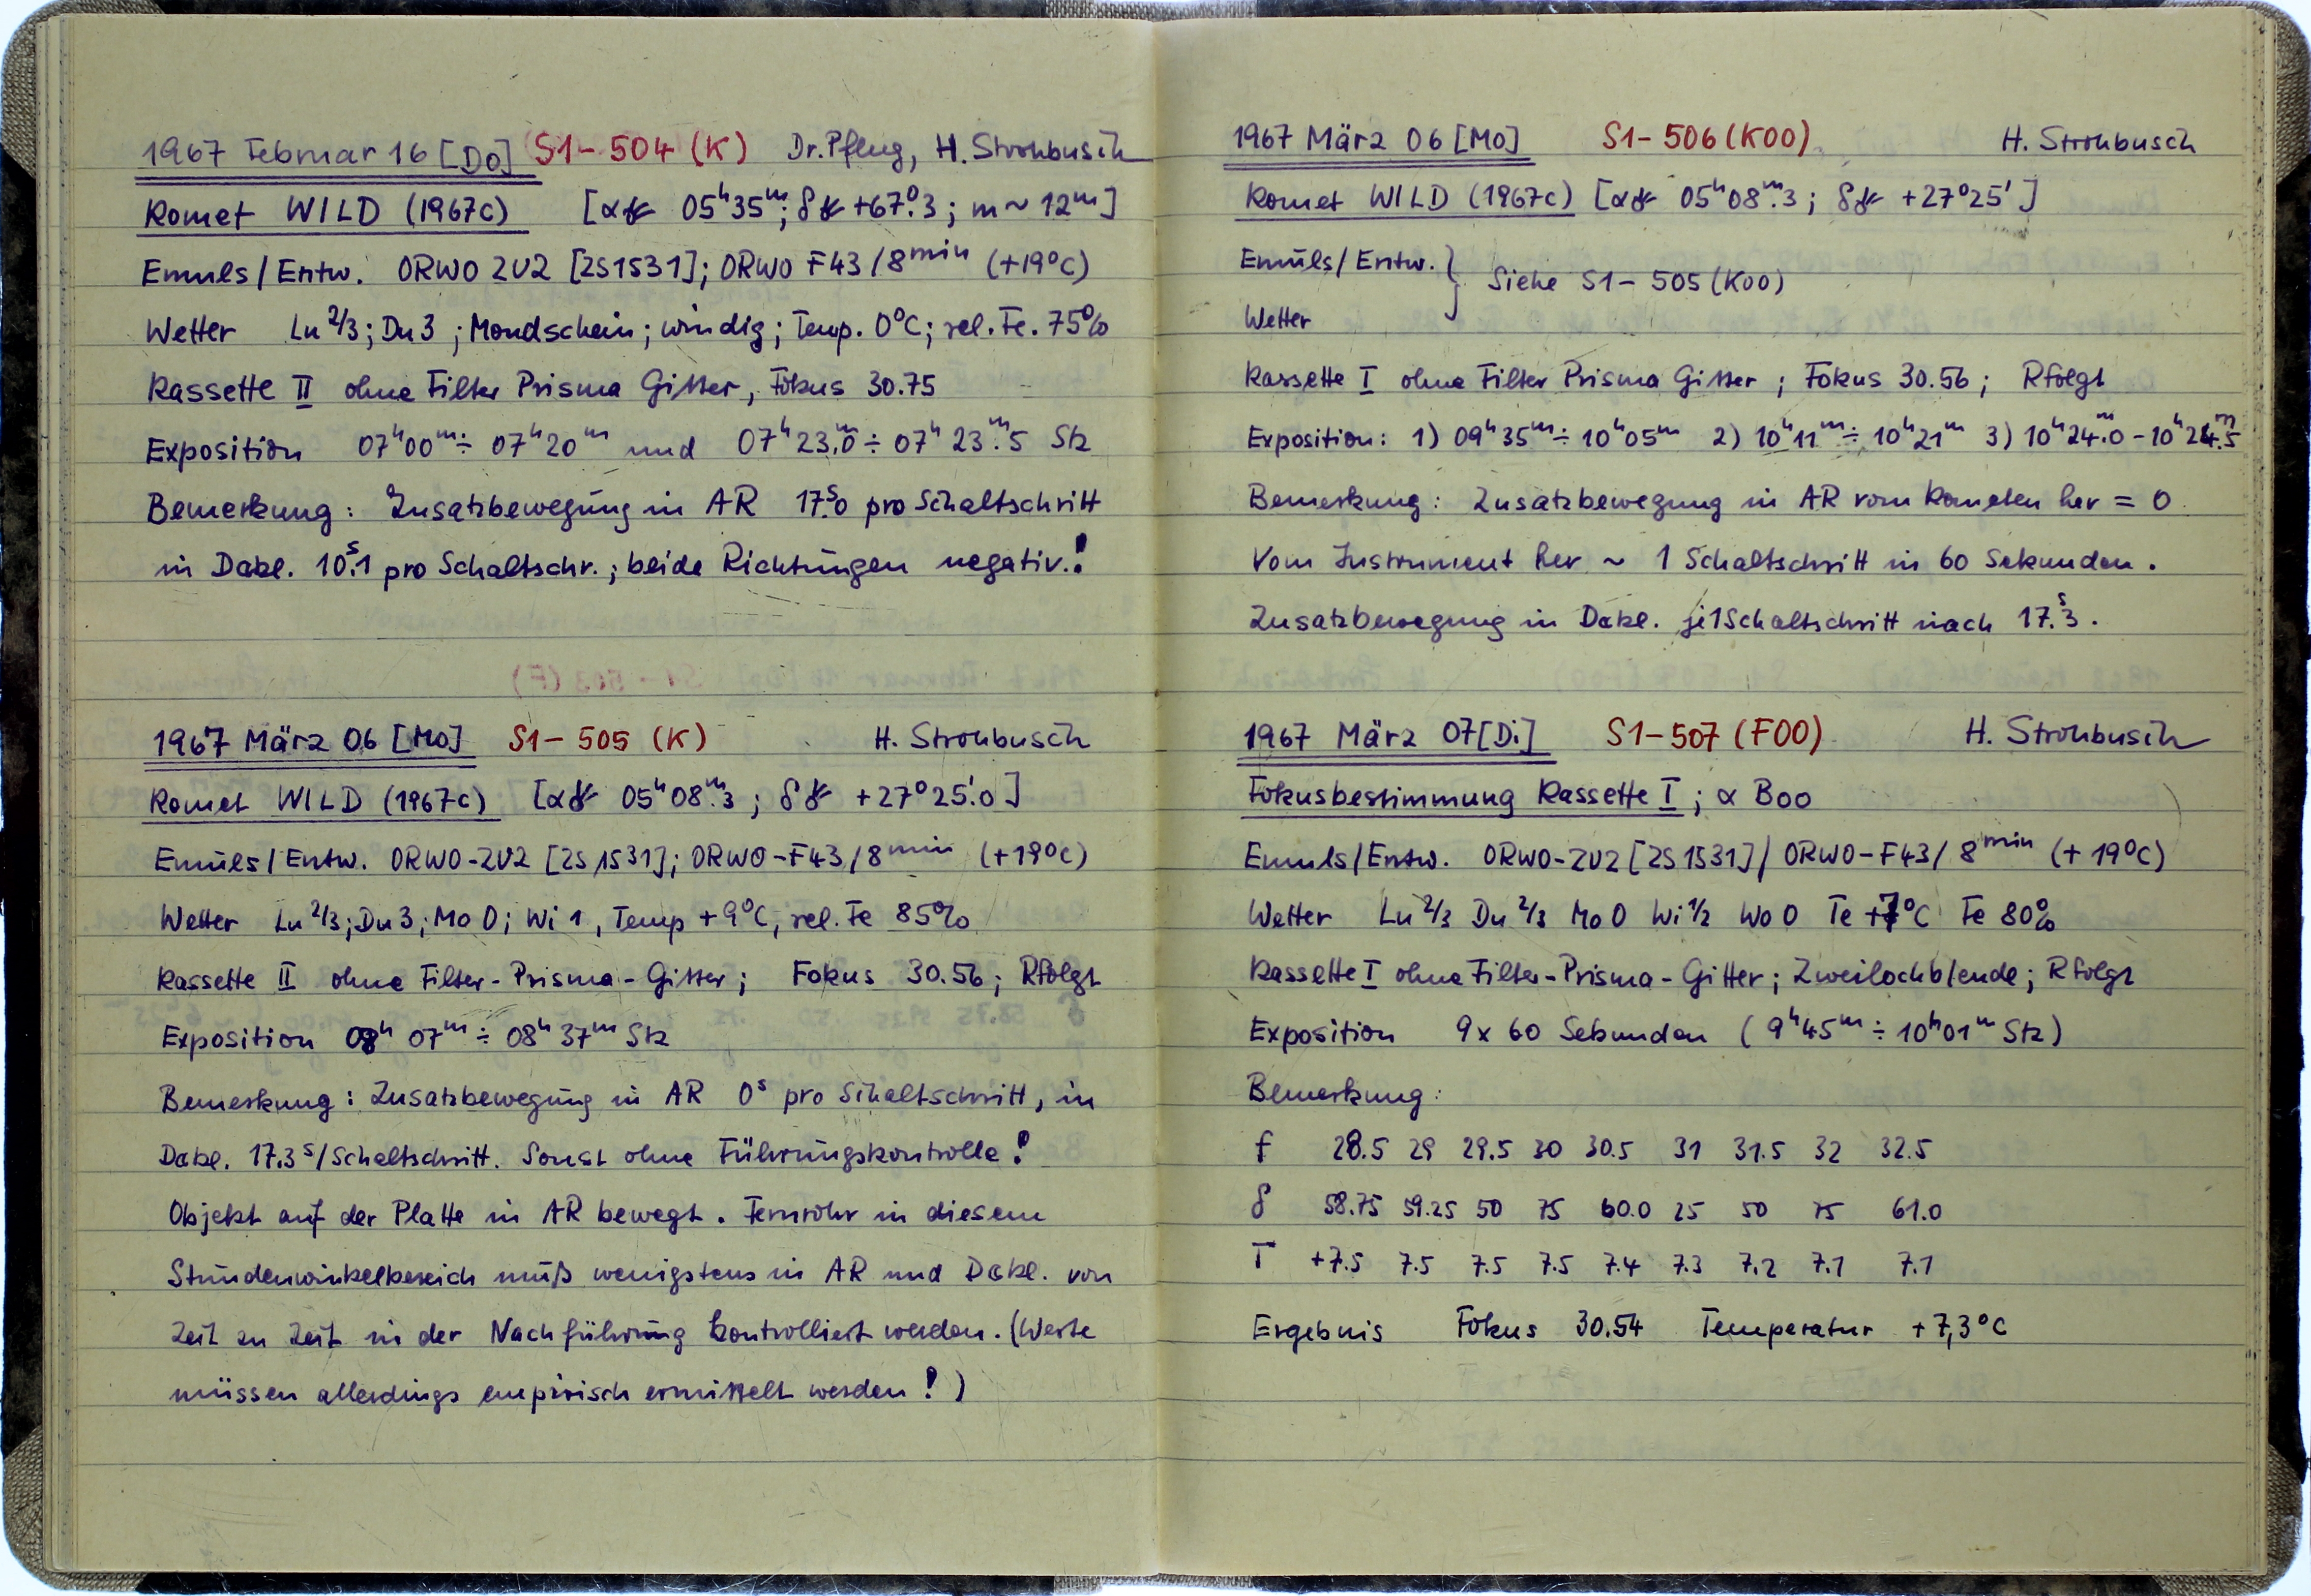 1967 Februar 16 [Do] S1-504 (K) Dr. Pflug, H. Strohbusch
Komet WILD (1967c) [α☄ 05ʰ35ᵐ; δ☄ +67°.3; m ~ 12ᵐ]
Emuls/Entw. ORWO ZU2 [2S1531]; ORWO F43/8ᵐⁱⁿ (+19°C)
Wetter Lu 2/3; Du 3; Mondschein; windig; Temp. 0°C; rel. Fe. 75%
Kassette II ohne Filter Prisma Gitter, Fokus 30.75
Exposition 07ʰ00ᵐ ÷ 07ʰ20ᵐ und 07ʰ23ᵐ.0 ÷ 07ʰ23ᵐ.5 Stz
Bemerkung: Zusatzbewegung in AR 17ˢ.0 pro Schaltschritt
in Dekl. 10ˢ.1 pro Schaltschr.; beide Richtungen negativ.!
1967 März 06 [Mo] S1-505 (K) H. Strohbusch
Komet WILD (1967c) [α☄ 05ʰ08ᵐ.3; δ☄ +27°25'.0]
Emuls/Entw. ORWO-ZU2 [2S1531]; ORWO-F43/8ᵐⁱⁿ (+19°C)
Wetter Lu 2/3; Du 3; Mo 0; Wi 1, Temp +9°C, rel. Fe 85%
Kassette II ohne Filter-Prisma-Gitter; Fokus 30.56; R folgt
Exposition 08ʰ 07ᵐ ÷ 08ʰ 37ᵐ Stz
Bemerkung: Zusatzbewegung in AR 0ˢ pro Schaltschritt, in
Dekl. 17.3ˢ/Schaltschritt. Sonst ohne Führungskontrolle!
Objekt auf der Platte in AR bewegt. Fernrohr in diesem
Stundenwinkelbereich muß wenigstens in AR und Dekl. von
Zeit zu Zeit in der Nachführung kontrolliert werden. (Werte
müssen allerdings empirisch ermittelt werden!)
1967 März 06 [Mo] S1-506 (K00) H. Strohbusch
Komet WILD (1967c) [α☄ 05ʰ08ᵐ.3; δ☄ +27°25']
Emuls/Entw. } Siehe S1-505 (K00)
Wetter
Kassette I ohne Filter Prisma Gitter; Fokus 30.56; R folgt
Exposition: 1) 09ʰ35ᵐ ÷ 10ʰ05ᵐ 2) 10ʰ11ᵐ ÷ 10ʰ21ᵐ 3) 10ʰ24ᵐ.0 - 10ʰ24ᵐ.5
Bemerkung: Zusatzbewegung in AR vom Kometen her = 0
Vom Instrument her ~ 1 Schaltschritt in 60 Sekunden.
Zusatzbewegung in Dekl. je 1 Schaltschritt nach 17ˢ.3.
1967 März 07 [Di] S1-507 (F00) H. Strohbusch
Fokusbestimmung Kassette I; α Boo
Emuls/Entw. ORWO-ZU2 [2S1531] / ORWO-F43/ 8ᵐⁱⁿ (+19°C)
Wetter Lu 2/3 Du 2/3 Mo 0 Wi 1/2 Wo 0 Te +7°C Fe 80%
Kassette I ohne Filter-Prisma-Gitter; Zweilochblende; R folgt
Exposition 9 x 60 Sekunden (9ʰ45ᵐ ÷ 10ʰ01ᵐ Stz)
Bemerkung:
f 28.5 29 29.5 30 30.5 31 31.5 32 32.5
δ 58.75 59.25 50 75 60.0 25 50 75 61.0
T +7.5 7.5 7.5 7.5 7.4 7.3 7.2 7.1 7.1
Ergebnis Fokus 30.54 Temperatur +7,3°C